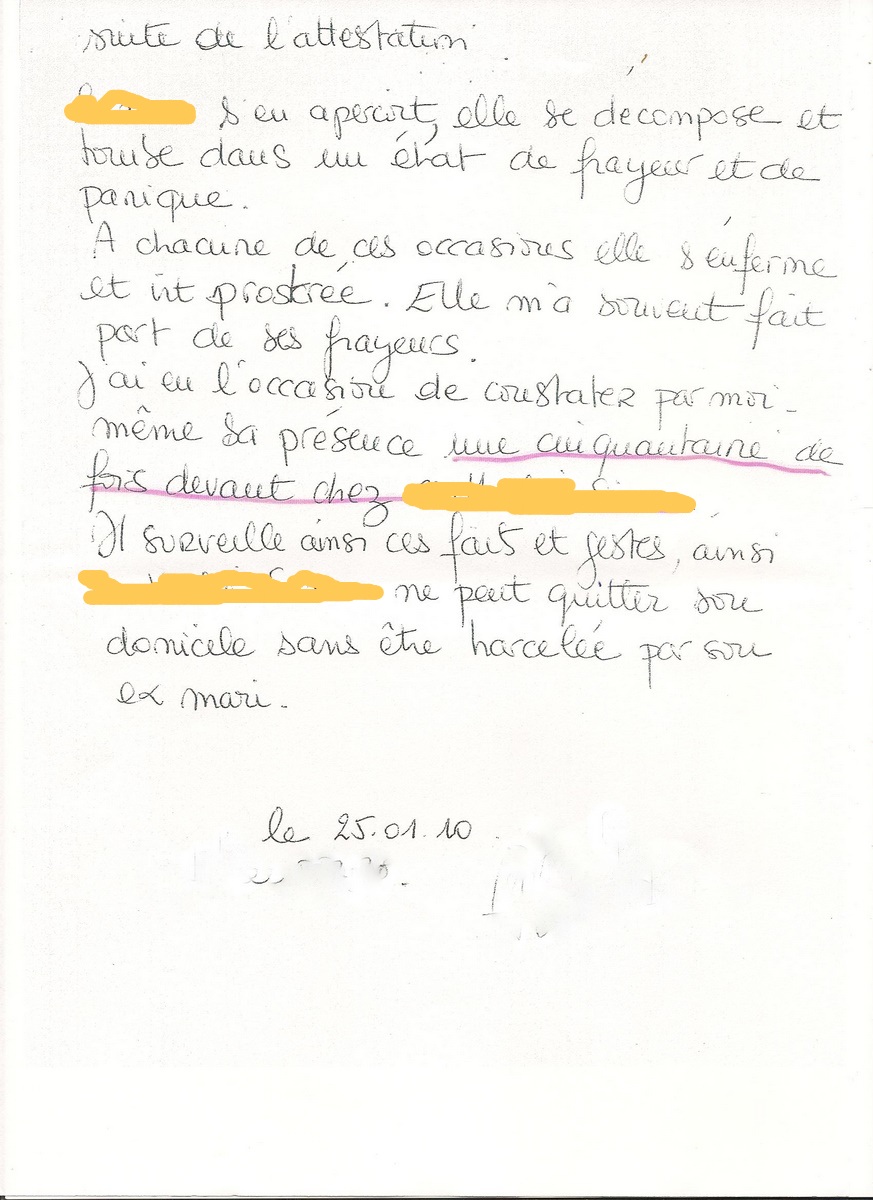 suite de l'attestation
s'en apercoit, elle se décompose et
tombe dans un état de frayeur et de
panique.
A chacune de ces occasions elle s'enferme
et vit prostrée. Elle m'a souvent fait
part de ses frayeurs.
J'ai eu l'occasion de constater par moi-
même sa présence une cinquantaine de
fois devant chez
Il surveille ainsi ces fait et gestes, ainsi
ne peut quitter son
domicile sans être harcelée par son
ex mari.
le 25.01.10